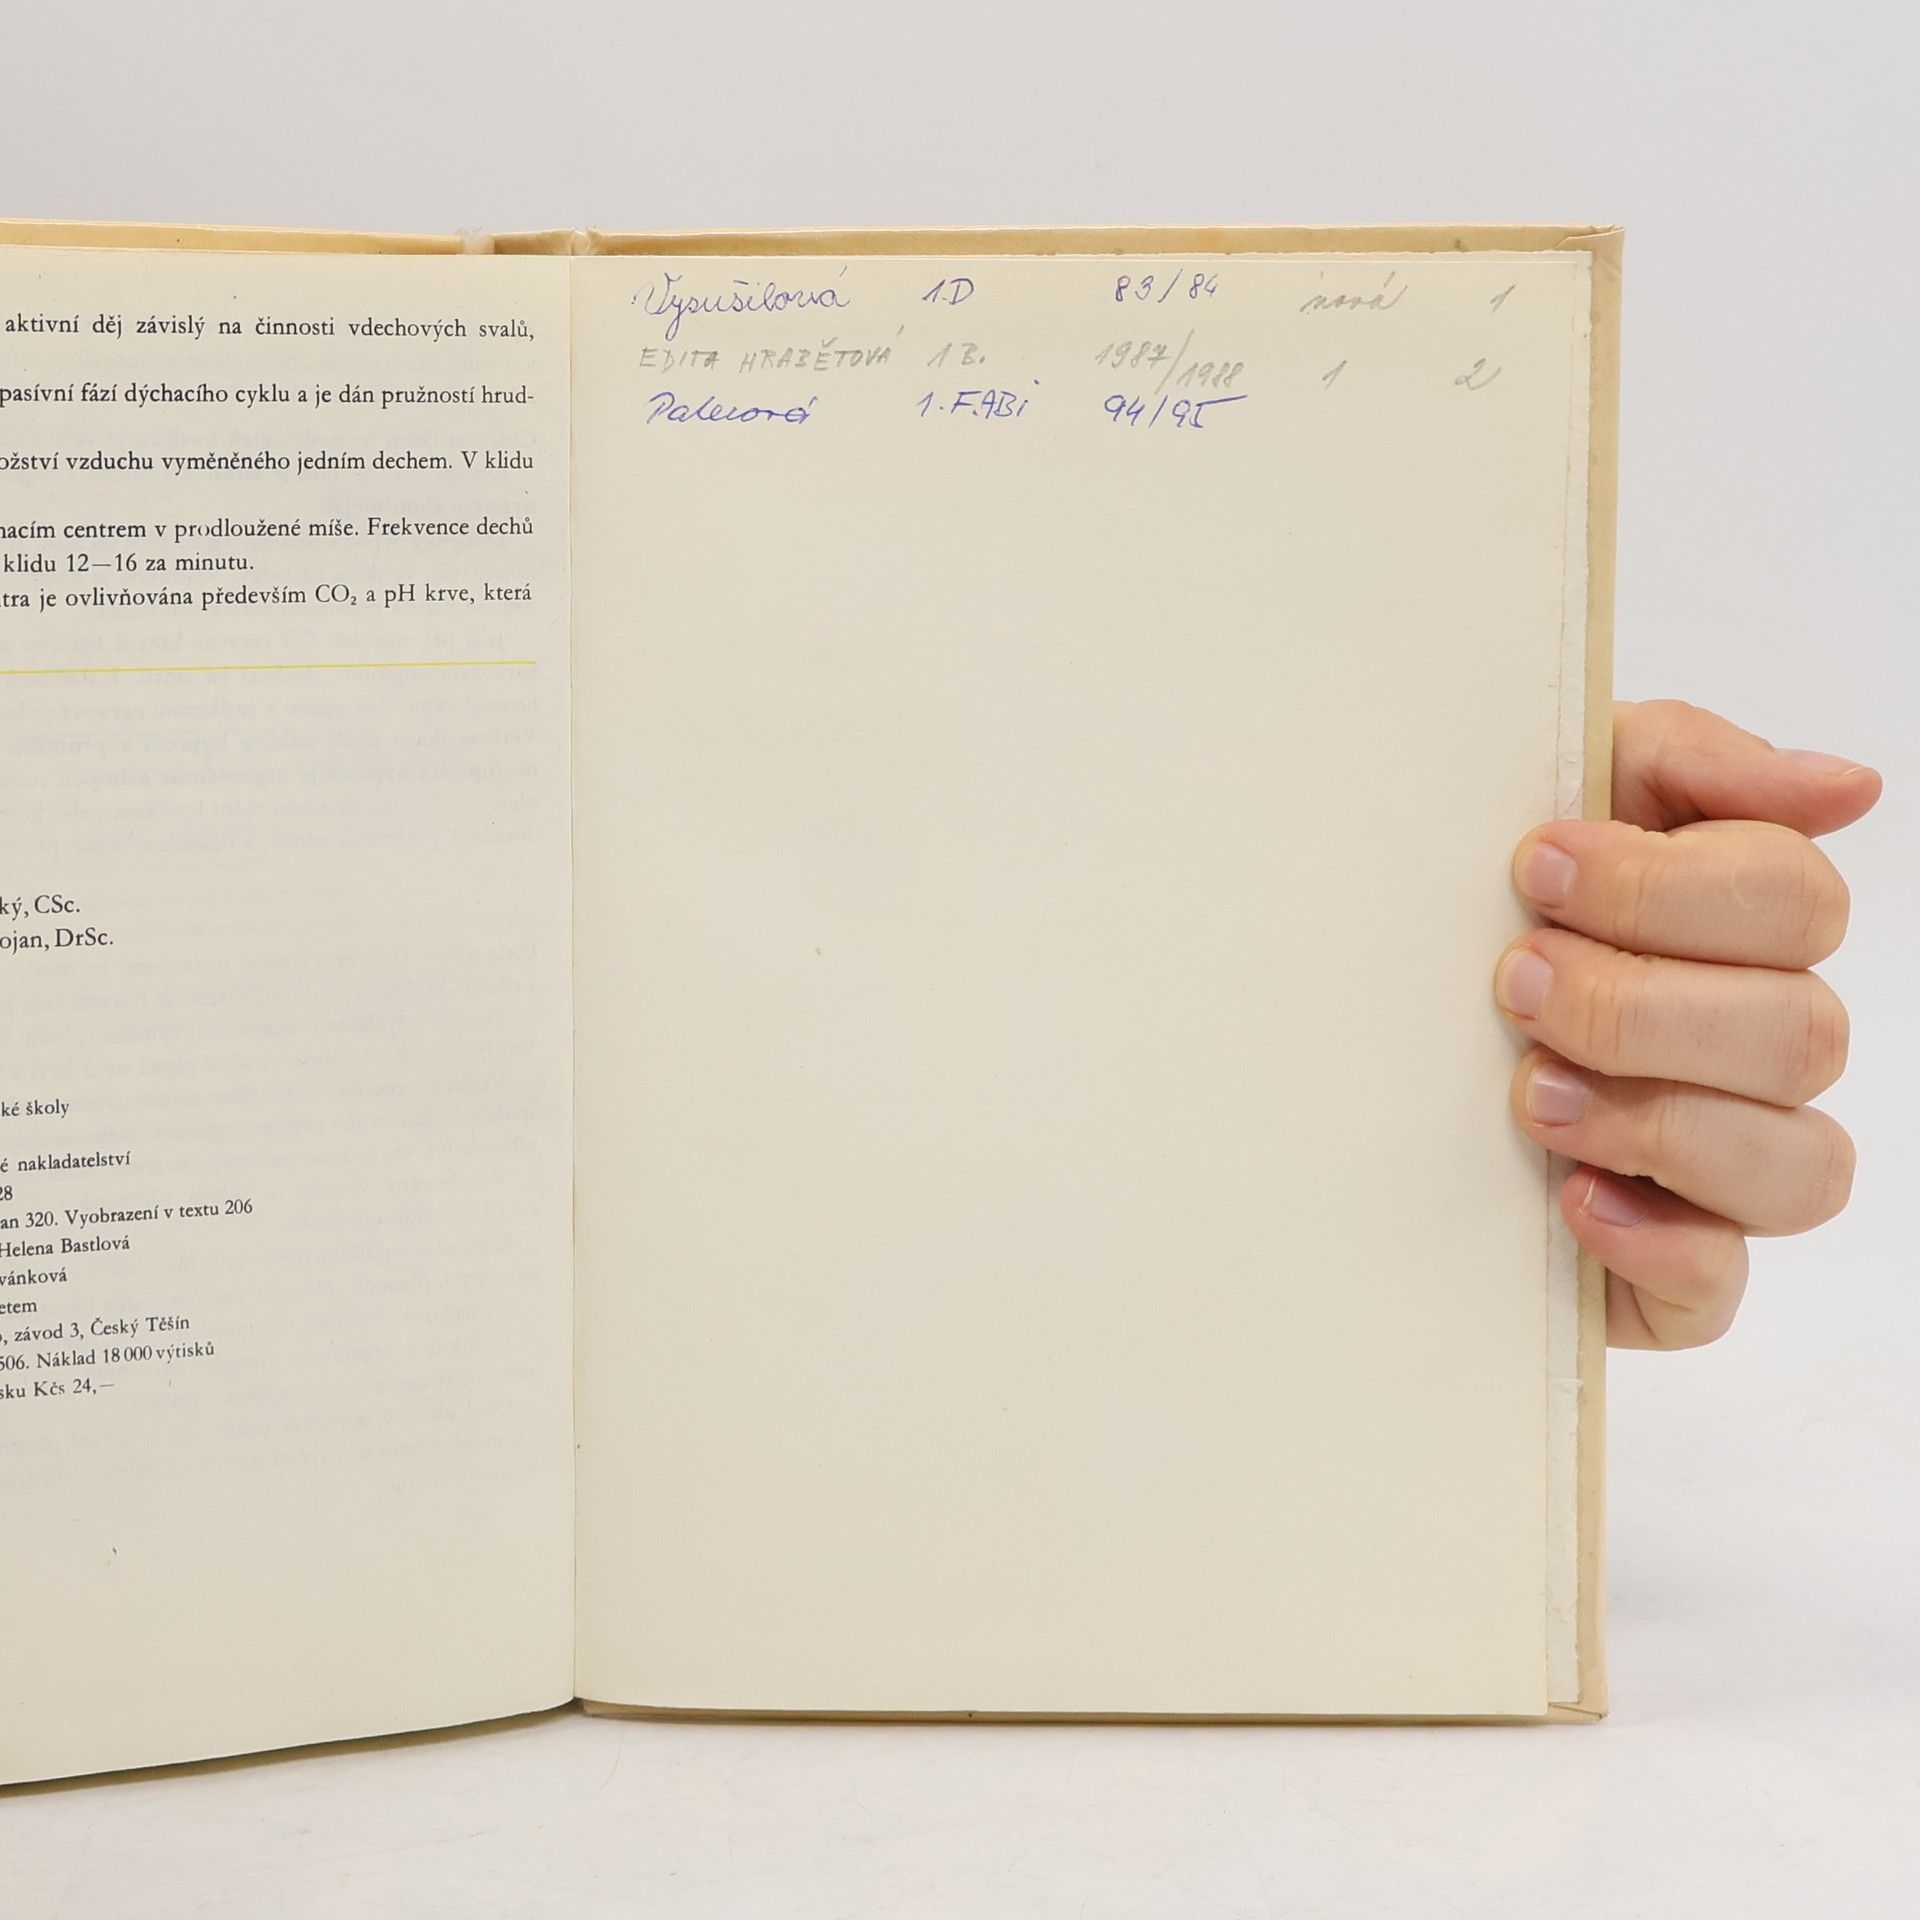 aktivní děj závislý na činnosti vdechových svalů,
pasívní fází dýchacího cyklu a je dán pružností hrud-
ožství vzduchu vyměněného jedním dechem. V klidu
hacím centrem v prodloužené míše. Frekvence dechů
klidu 12—16 za minutu.
tra je ovlivňována především CO₂ a pH krve, která
ký, CSc.
ojan, DrSc.
ké školy
é nakladatelství
28
an 320. Vyobrazení v textu 206
Helena Bastlová
vánková
etem
, závod 3, Český Těšín
506. Náklad 18 000 výtisků
sku Kčs 24,—
Vysušilová 1.D 83/84 nová 1
EDITA HRABĚTOVÁ 1B. 1987/1988 1 2
1.F.ABi 94/95